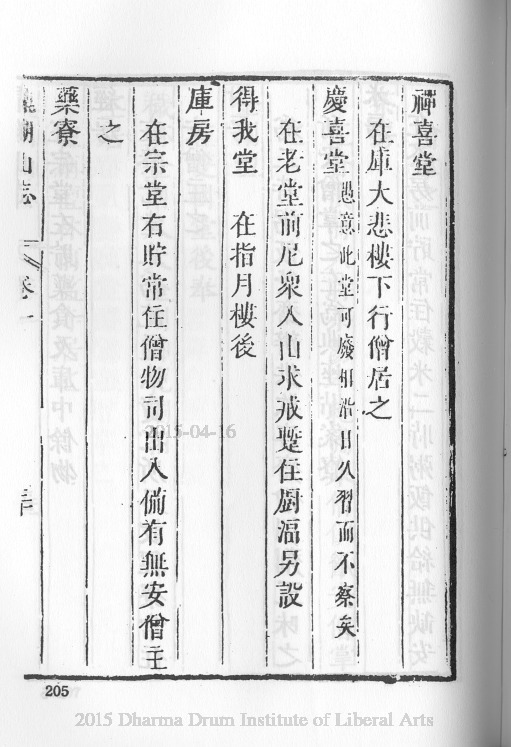 禪喜堂
在庫大悲樓下行僧居之
慶喜堂愚意此堂可廢相沿日久習而不察矣
在老堂前尼衆入山求戒蹔住廚湢另設
得我堂　在指月樓後
庫房
在宗堂右貯常住僧物司出入備有無安僧主
之
藥寮
山志　卷一
205
2015-04-16
2015 Dharma Drum Institute of Liberal Arts